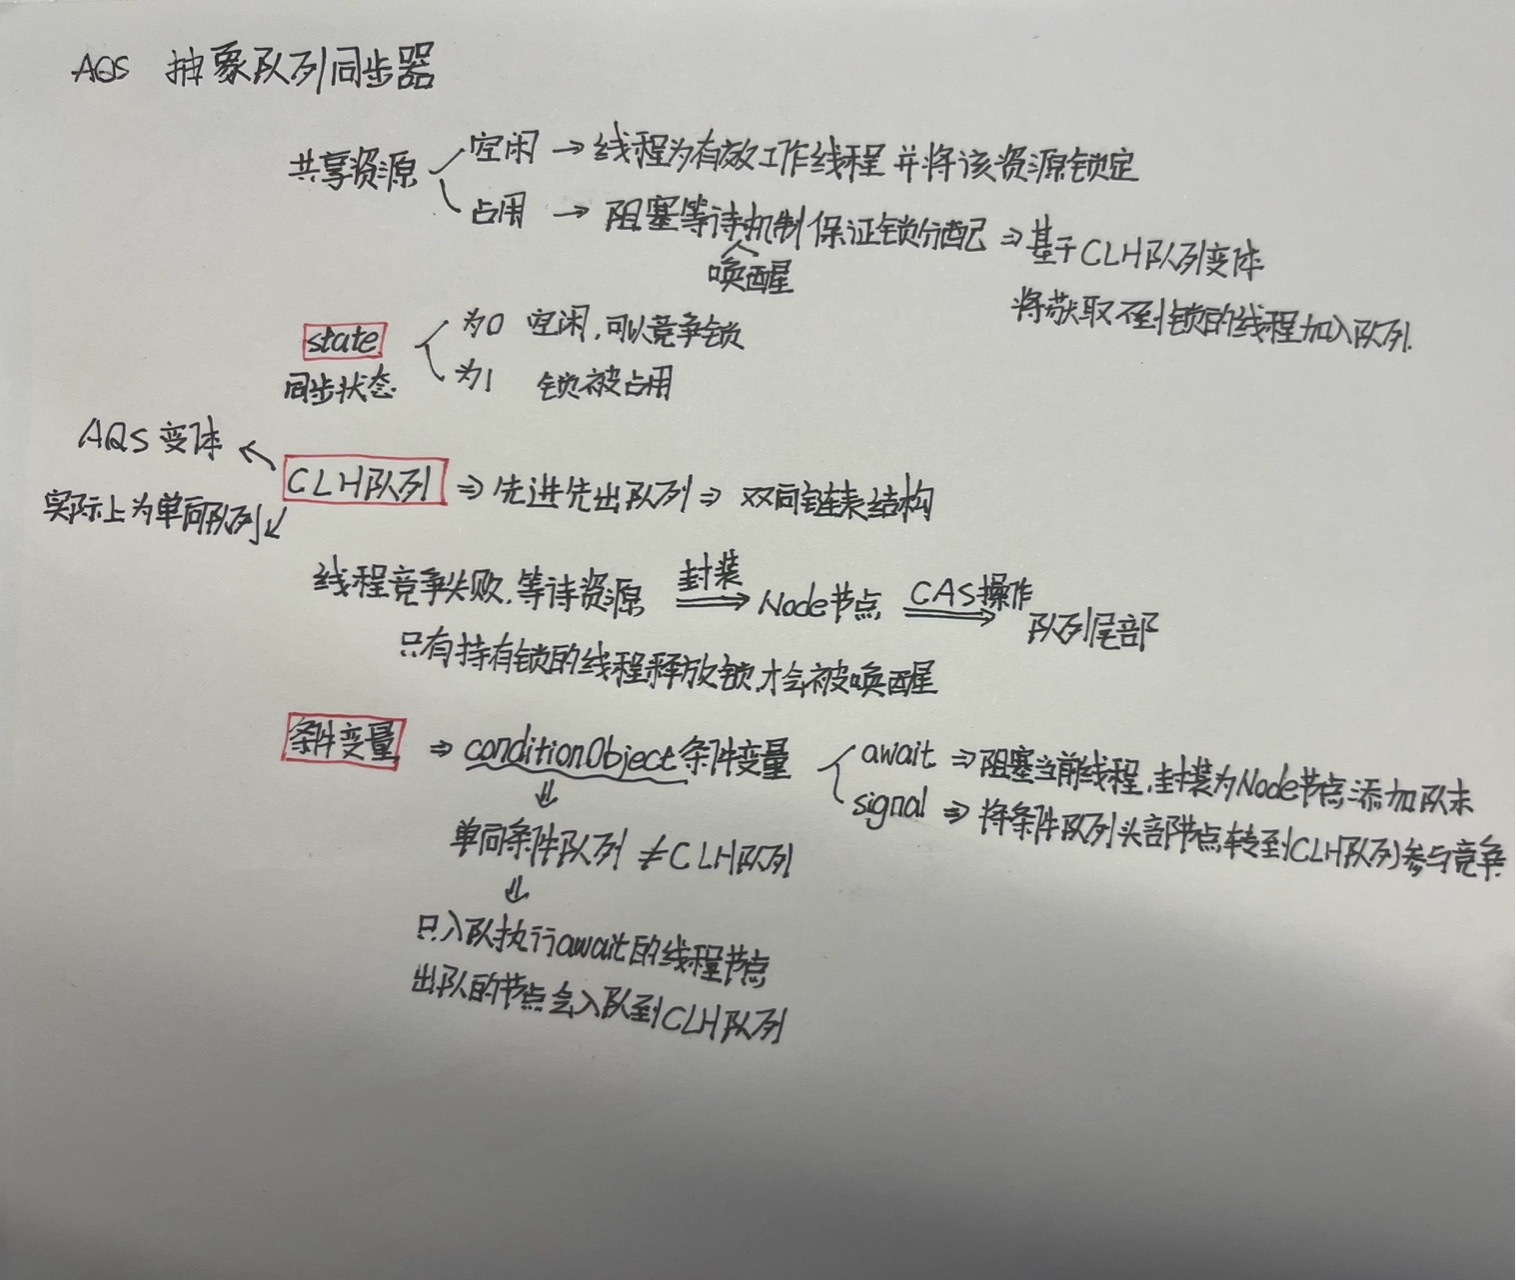 AQS 抽象队列同步器
共享资源
空闲 → 线程为有效工作线程 并将该资源锁定
占用 → 阻塞等待机制 保证锁分配 ⇒ 基于CLH队列变体
唤醒
将获取不到锁的线程加入队列.
state
同步状态
为0 空闲,可以竞争锁
为1 锁被占用
AQS 变体
CLH队列 ⇒ 先进先出队列 ⇒ 双向链表结构
实际上为单向队列
线程竞争失败,等待资源 封装 Node节点 CAS操作 队列尾部
只有持有锁的线程释放锁,才会被唤醒
条件变量 ⇒ conditionObject 条件变量
await ⇒ 阻塞当前线程,封装为Node节点添加队末
signal ⇒ 将条件队列头部节点转到CLH队列参与竞争
单向条件队列 ≠ CLH队列
只入队执行await的线程节点
出队的节点会入队到CLH队列